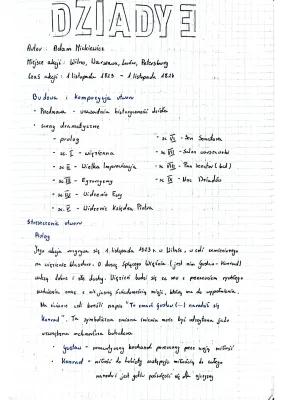 DZIADY 3
Autor: Adam Mickiewicz
Miejsce akcji: Wilno, Warszawa, Lwów, Petersburg
Czas akcji: 1 listopada 1823 - 1 listopada 1824
Budowa i kompozycja utworu
• Przedmowa - uzasadnia historyczność dzieła
• sceny dramatyczne
- prolog
- sc. I - więzienna
- sc. II - Wielka Improwizacja
- sc. III - Egzorcyzmy
- sc. IV - Widzenie Ewy
- sc. V - Widzenie Księdza Piotra
- sc. VI - Sen Senatora
- sc. VII - Salon warszawski
- sc. VIII - Pan Senator (bal)
- sc. IX - Noc Dziadów
Streszczenie utworu
Prolog
Jego akcja rozgrywa się 1 listopada 1823 r. w Wilnie, w celi zamienionego
na więzienie klasztoru. O duszę śpiącego Więźnia (jest nim Gustaw-Konrad)
walczą dobre i złe duchy. Więzień budzi się ze snu z poczuciem
oraz z niejasną świadomością misji, którą ma do wypełnienia.
Na ścianie celi kreśli napis "Tu umarł Gustaw (...) narodził się
Konrad". Ta symboliczna zmiana imienia może być odczytana jako
wewnętrzna metamorfoza bohatera.
• Gustaw - romantyczny kochanek
• Konrad - miłość do kobiety zastępuje miłością do całego
narodu i jest gotów poświęcić się dla ojczyzny